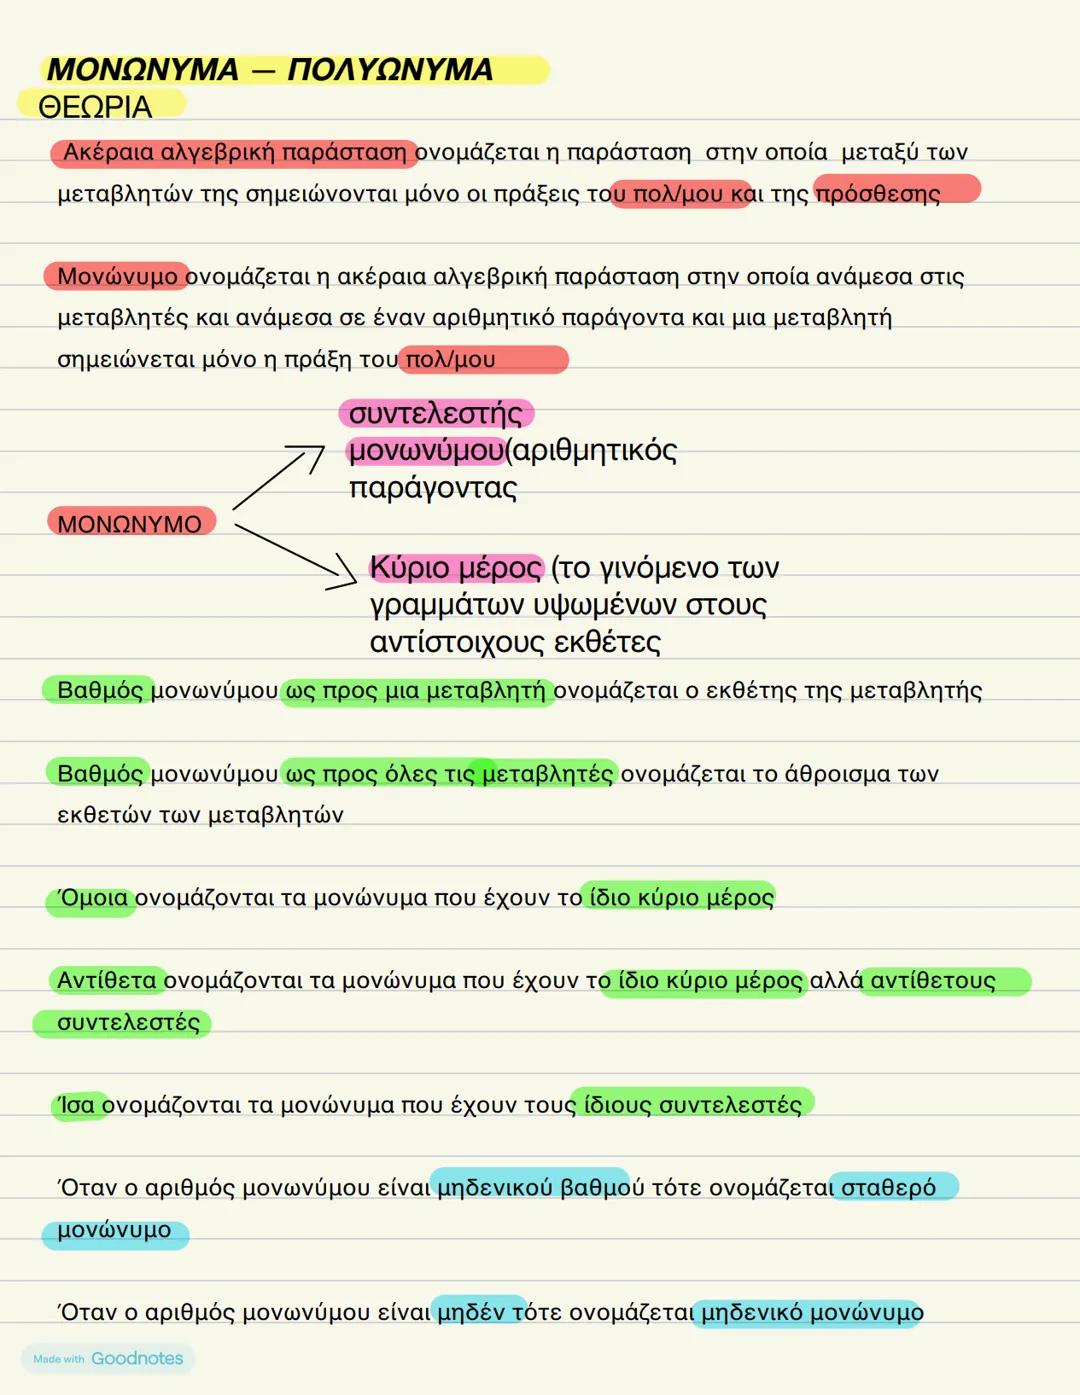 ΜΟΝΩΝΥΜΑ — ΠΟΛΥΩΝΥΜΑ
ΘΕΩΡΙΑ
Ακέραια αλγεβρική παράσταση ονομάζεται η παράσταση στην οποία μεταξύ των
μεταβλητών της σημειώνονται μόνο οι πράξεις του πολ/μου και της πρόσθεσης
Μονώνυμο ονομάζεται η ακέραια αλγεβρική παράσταση στην οποία ανάμεσα στις
μεταβλητές και ανάμεσα σε έναν αριθμητικό παράγοντα και μια μεταβλητή
σημειώνεται μόνο η πράξη του πολ/μου
συντελεστής
μονωνύμου(αριθμητικός
παράγοντας
ΜΟΝΩΝΥΜΟ
Κύριο μέρος (το γινόμενο των
γραμμάτων υψωμένων στους
αντίστοιχους εκθέτες
Βαθμός μονωνύμου ως προς μια μεταβλητή ονομάζεται ο εκθέτης της μεταβλητής
Βαθμός μονωνύμου ως προς όλες τις μεταβλητές ονομάζεται το άθροισμα των
εκθετών των μεταβλητών
Όμοια ονομάζονται τα μονώνυμα που έχουν το ίδιο κύριο μέρος
Αντίθετα ονομάζονται τα μονώνυμα που έχουν το ίδιο κύριο μέρος αλλά αντίθετους
συντελεστές
Ίσα ονομάζονται τα μονώνυμα που έχουν τους ίδιους συντελεστές
Όταν ο αριθμός μονωνύμου είναι μηδενικού βαθμού τότε ονομάζεται σταθερό
μονώνυμο
Όταν ο αριθμός μονωνύμου είναι μηδέν τότε ονομάζεται μηδενικό μονώνυμο
Made with Goodnotes